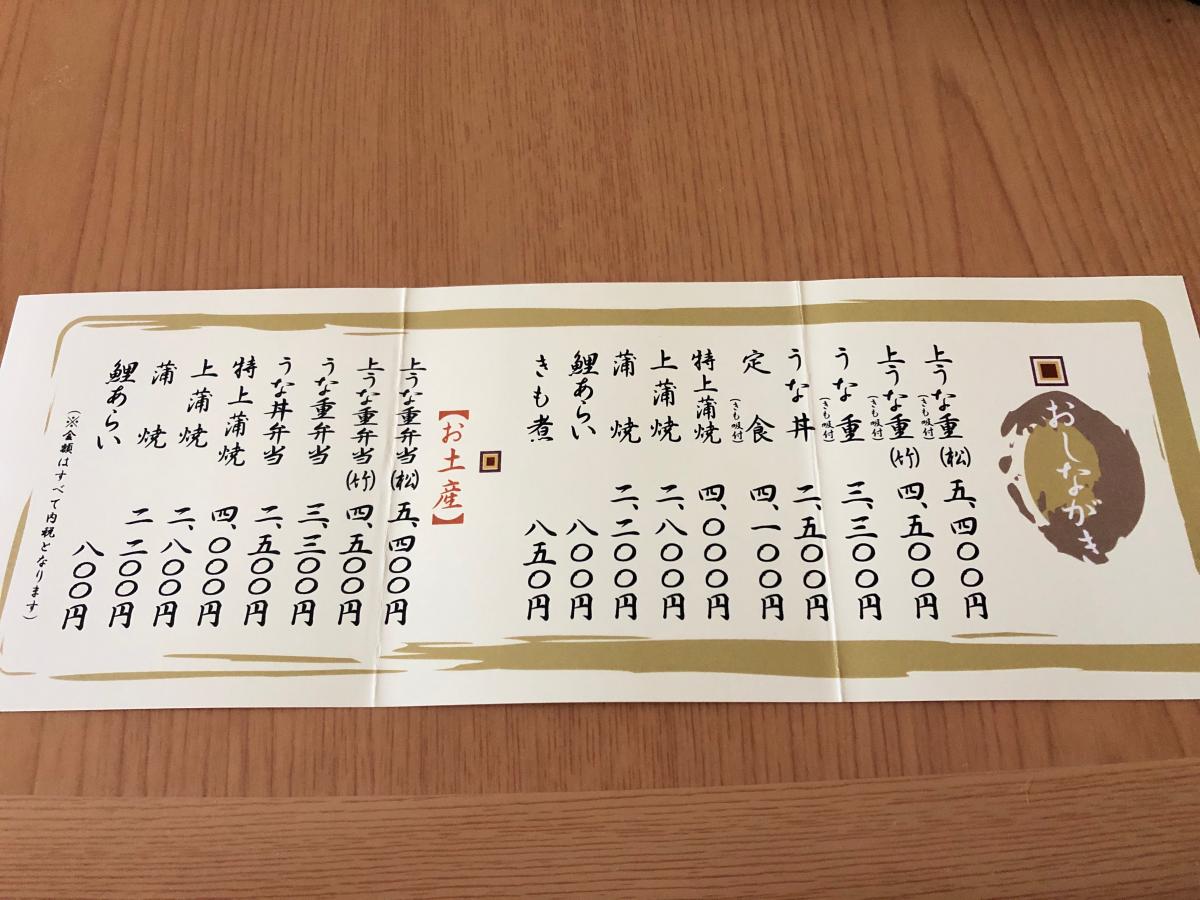 おしながき
上うな重(松) 五、四〇〇円
(きも吸付)
上うな重(竹) 四、五〇〇円
(きも吸付)
うな重 三、三〇〇円
(きも吸付)
うな丼 二、五〇〇円
定食 四、一〇〇円
(きも吸付)
特上蒲焼 四、〇〇〇円
上蒲焼 二、八〇〇円
蒲焼 二、二〇〇円
鯉あらい 八〇〇円
きも煮 八五〇円
【お土産】
上うな重弁当(松) 五、四〇〇円
上うな重弁当(竹) 四、五〇〇円
うな重弁当 三、三〇〇円
うな丼弁当 二、五〇〇円
特上蒲焼 四、〇〇〇円
上蒲焼 二、八〇〇円
蒲焼 二、二〇〇円
鯉あらい 八〇〇円
(※金額はすべて内税となります)